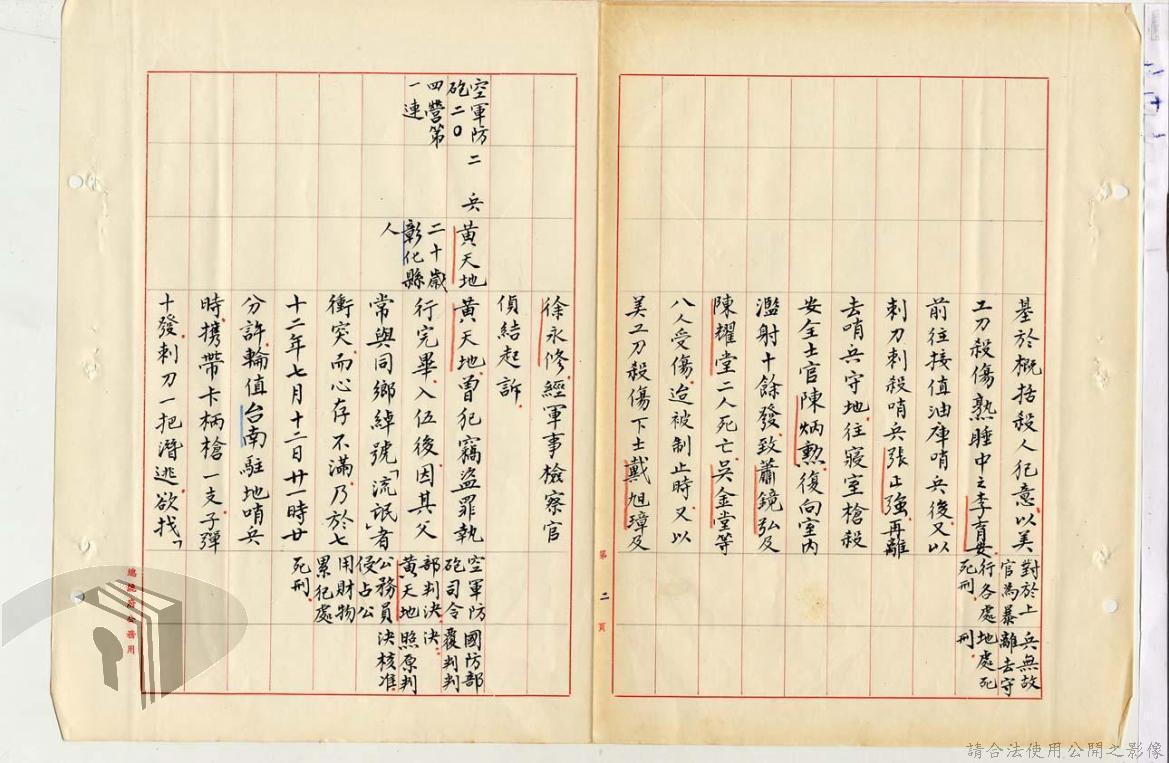 基於概括殺人犯意,以美
工刀殺傷熟睡中之李育安
前往接值油庫哨兵後,又以
刺刀刺殺哨兵張正強,再離
去哨兵守地,往寢室槍殺
安全士官陳炳勲,復向室內
濫射十餘發,致蕭鏡弘及
陳耀堂二人死亡,吳金堂等
八人受傷,迨被制止時,又以
美工刀殺傷下士戴旭璋及
對於上
官為暴
行各處
死刑
兵無故
離去守
地處死
刑。
第二頁
徐永修,經軍事檢察官
偵結起訴。
空軍防
砲二0
四營第
一連
二兵
黃天地
二十歲
彰化縣
人
黃天地,曾犯竊盜罪執
行完畢,入伍後,因其父
常與同鄉綽號「流氓」者
衝突,而心存不滿,乃於七
十二年七月十二日廿一時廿
分許,輪值台南駐地哨兵
時,攜帶卡柄槍一支,子彈
十發,刺刀一把潛逃,欲找「
空軍防
砲司令
部判決
黃天地
公務員
侵占公
用財物
累犯處
死刑。
國防部
覆判判
決:
照原判
決核准。
總統府公務用
請合法使用公開之影像